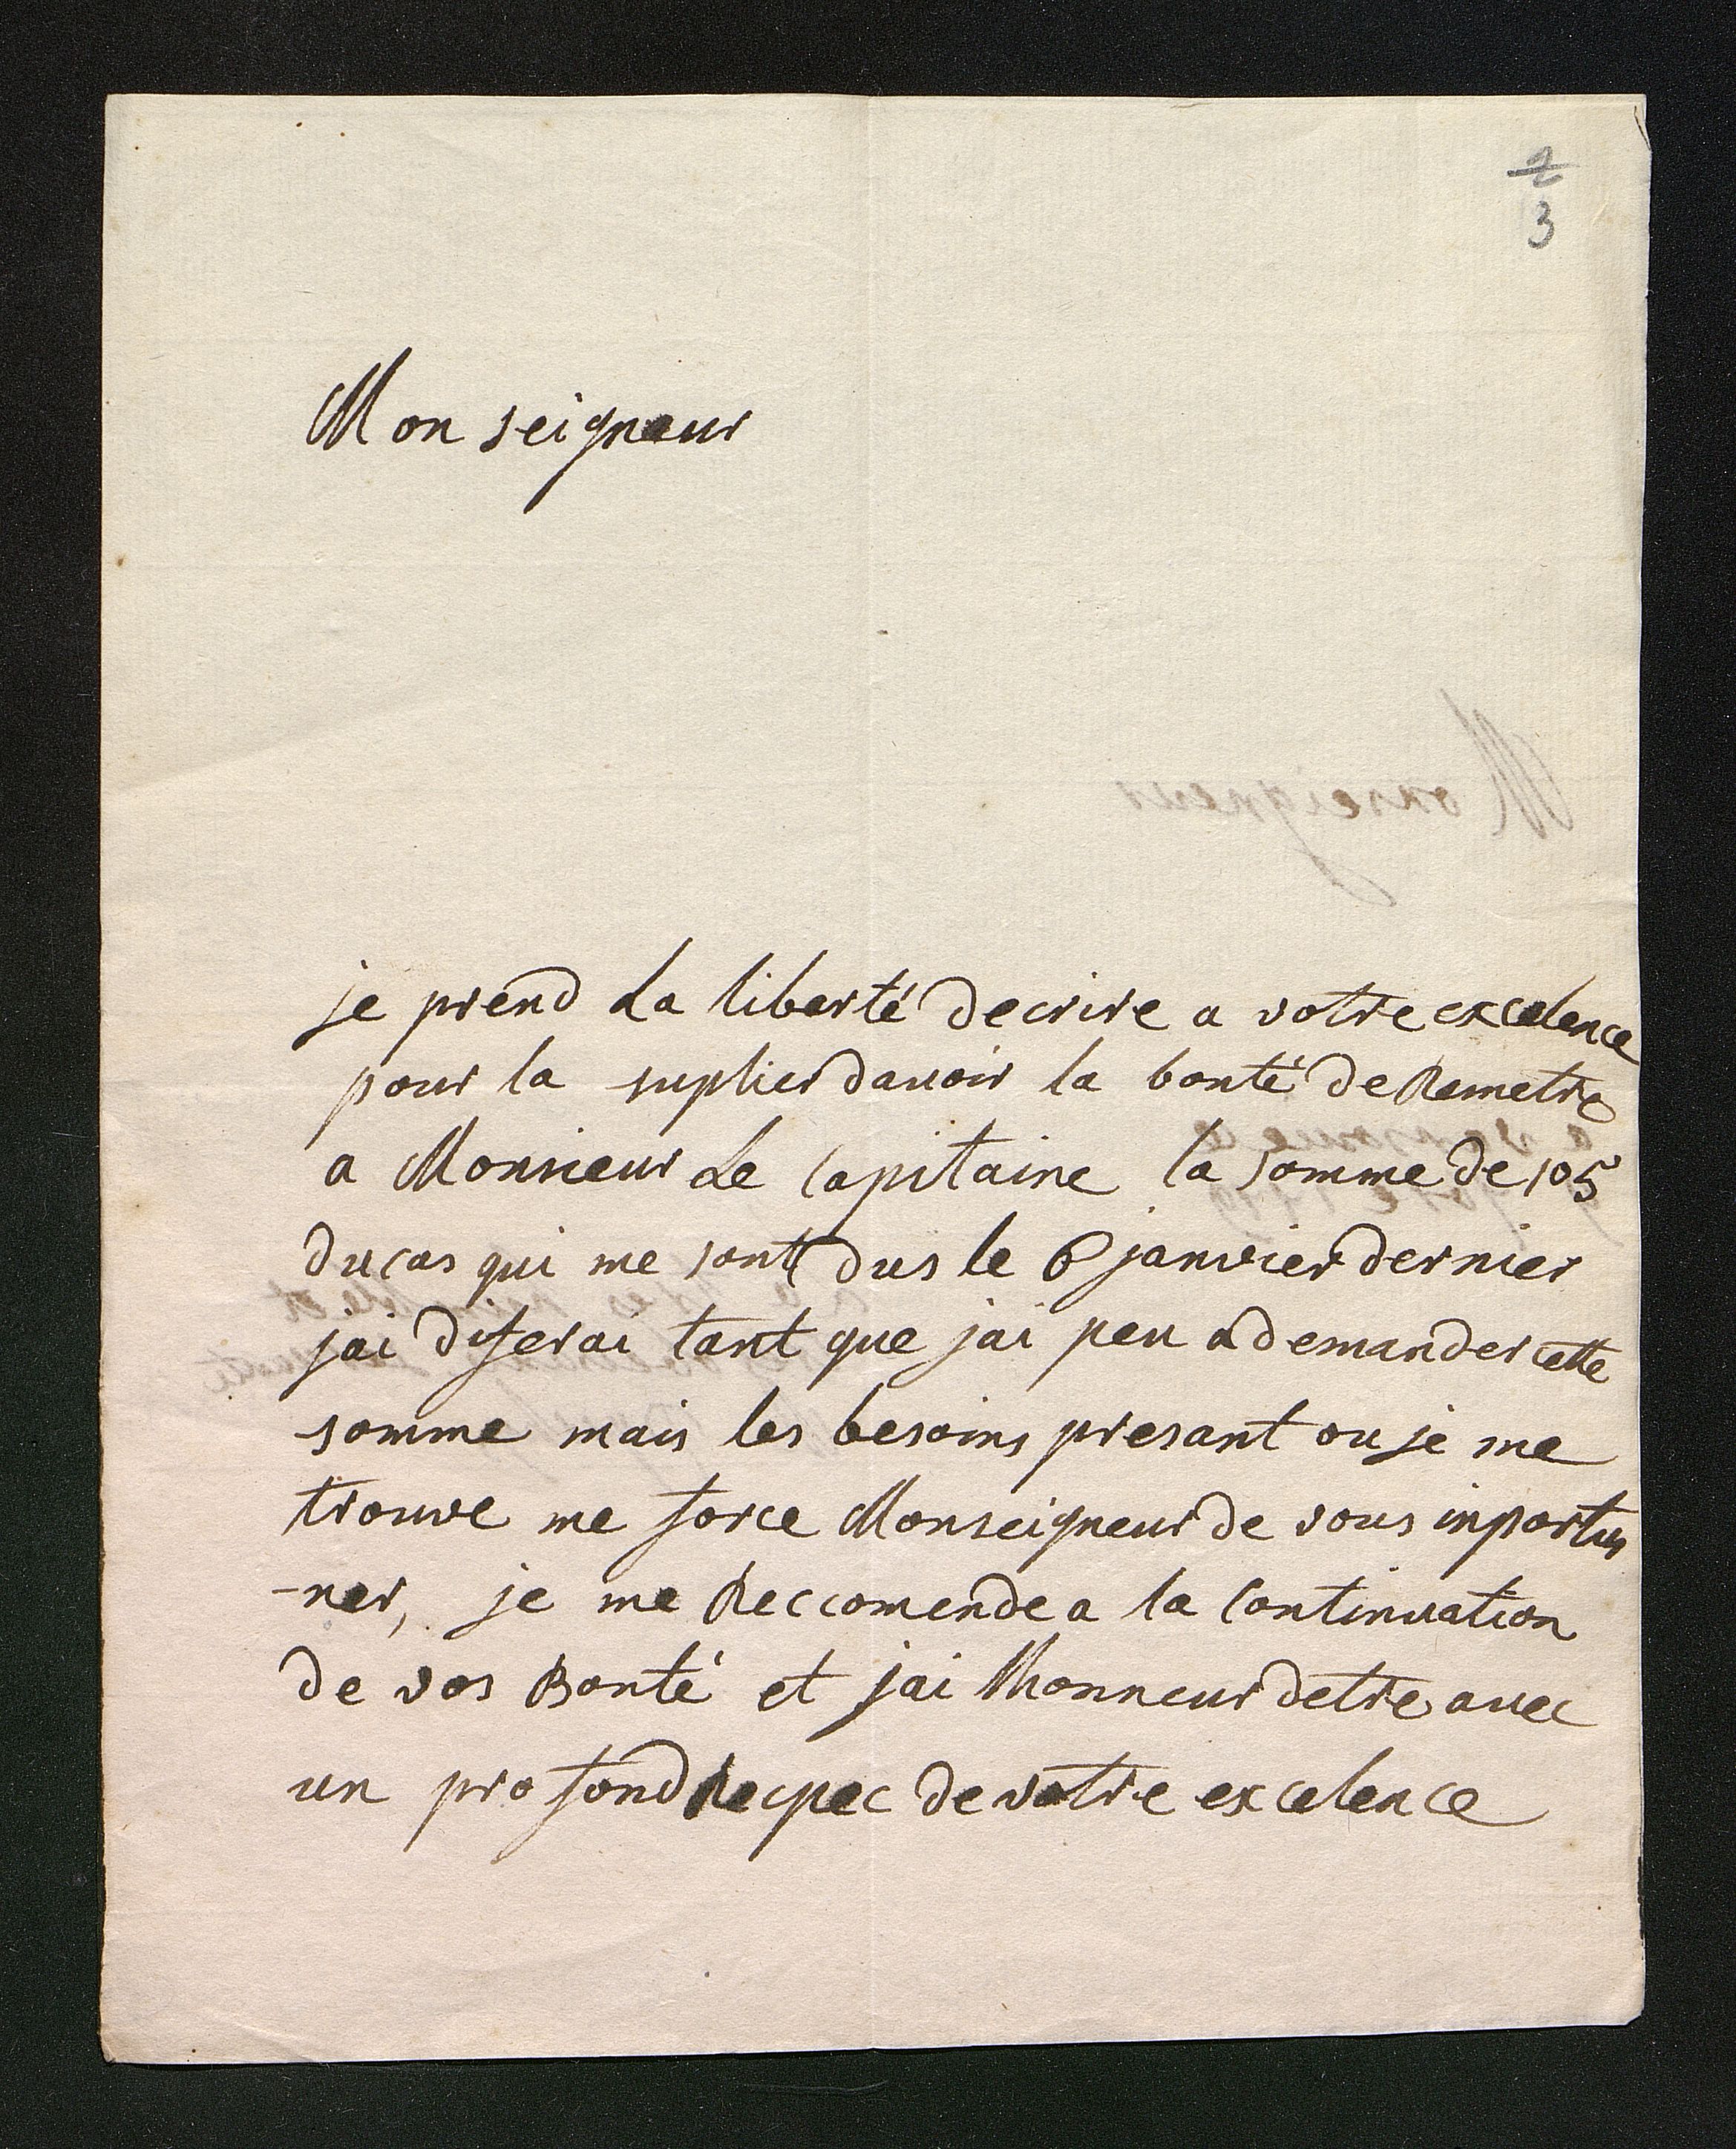 2
3
Mon seigneur
je prend La liberté decrire a votre excelence
pour la suplier davoir la bonté de Remetre
a Monsieur Le Capitaine la somme de 105
ducas qui me sont dus le 6 janvier dernier
jai diferai tant que jai peu a demander cette
somme mais les besoins presant ou je me
trouve me force Monseigneur de vous inportun
-ner, je me Reccomende a la Continuation
de vos Bonté et jai lhonneur detre avec
un profond Recpec de votre excelence